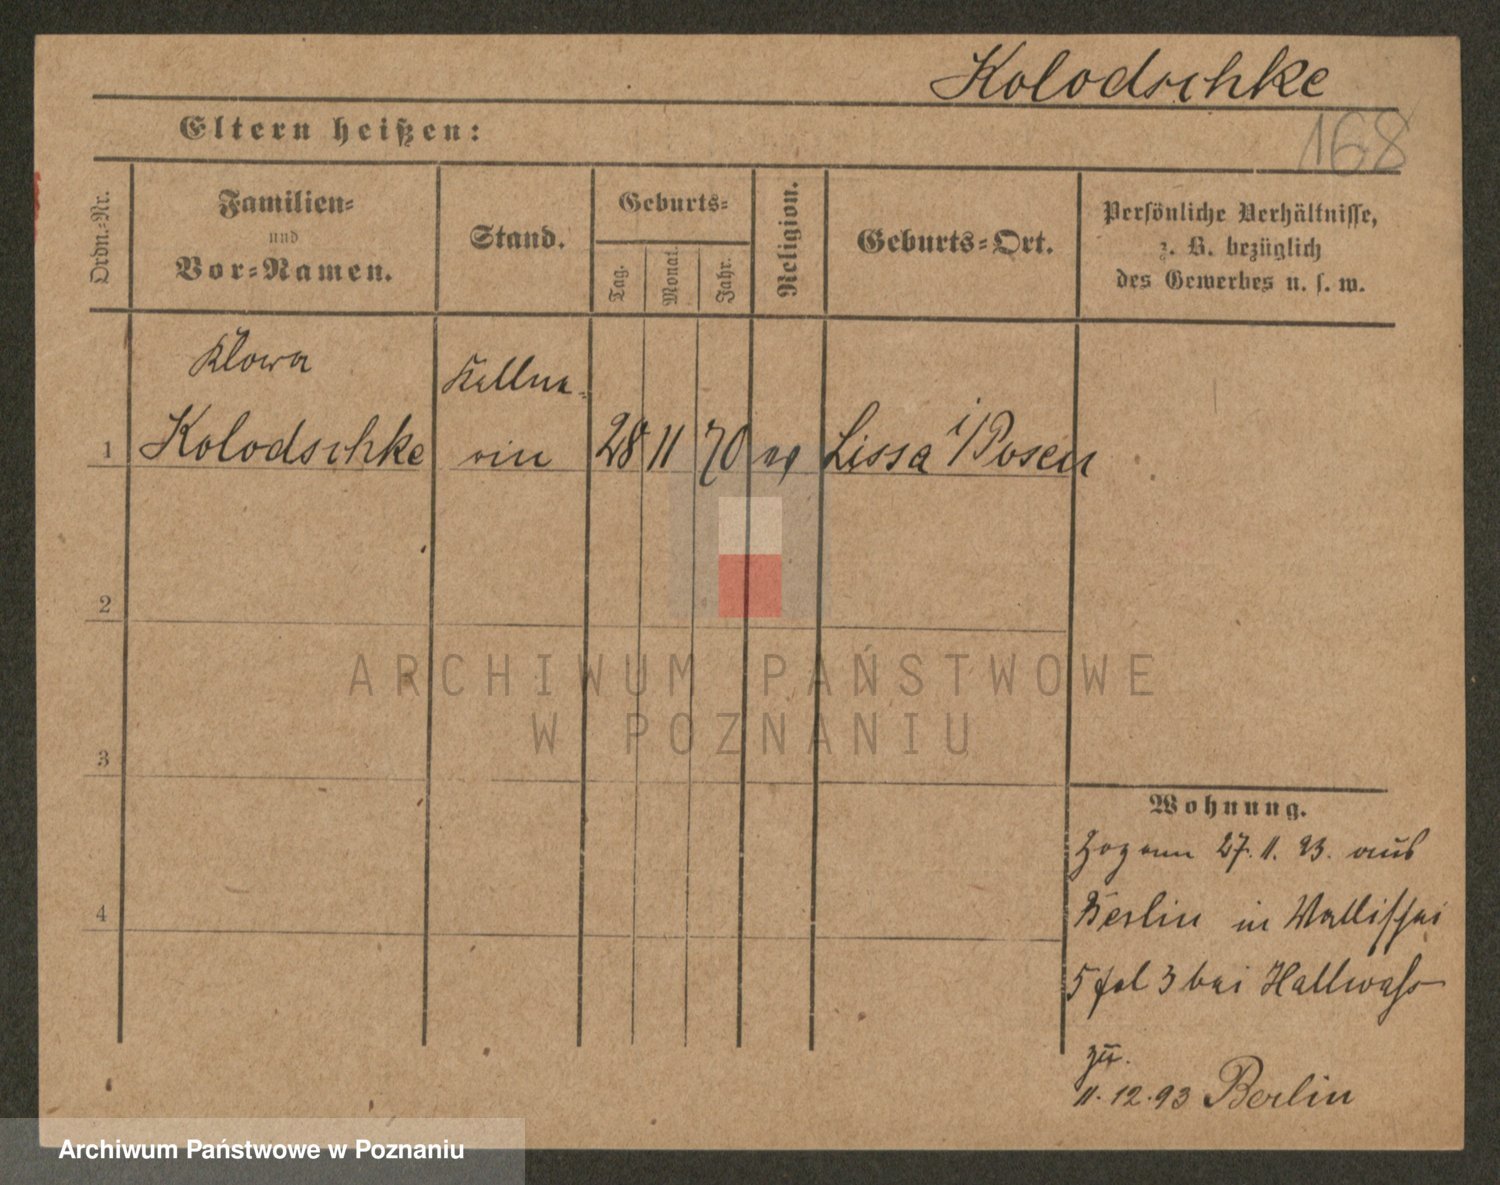 Kolodschke
168
Eltern heißen:
Ordn.-Nr.
Familien-
und
Vor-Namen.
Stand.
Geburts-
Tag.
Monat.
Jahr.
Religion.
Geburts-Ort.
Persönliche Verhältnisse,
z. B. bezüglich
des Gewerbes u. s. w.
Klara
Kellne-
1 Kolodschke rin 28 11 70 ev Lissa i/Posen
2
ARCHIWUM PAŃSTWOWE
W POZNANIU
3
Wohnung.
Zog am 27. 11. 93. aus
4
Berlin in Wallischei
5 bei Hallwass
zu.
11. 12. 93 Berlin
Archiwum Państwowe w Poznaniu